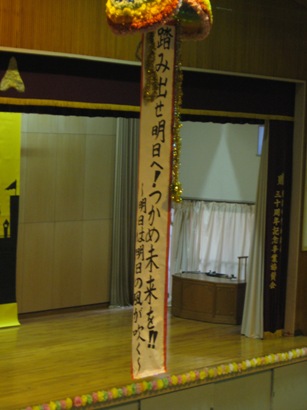 踏み出せ明日へ!つかめ未来を!!
~明日は明日の風が吹く~
三十周年記念事業協賛会